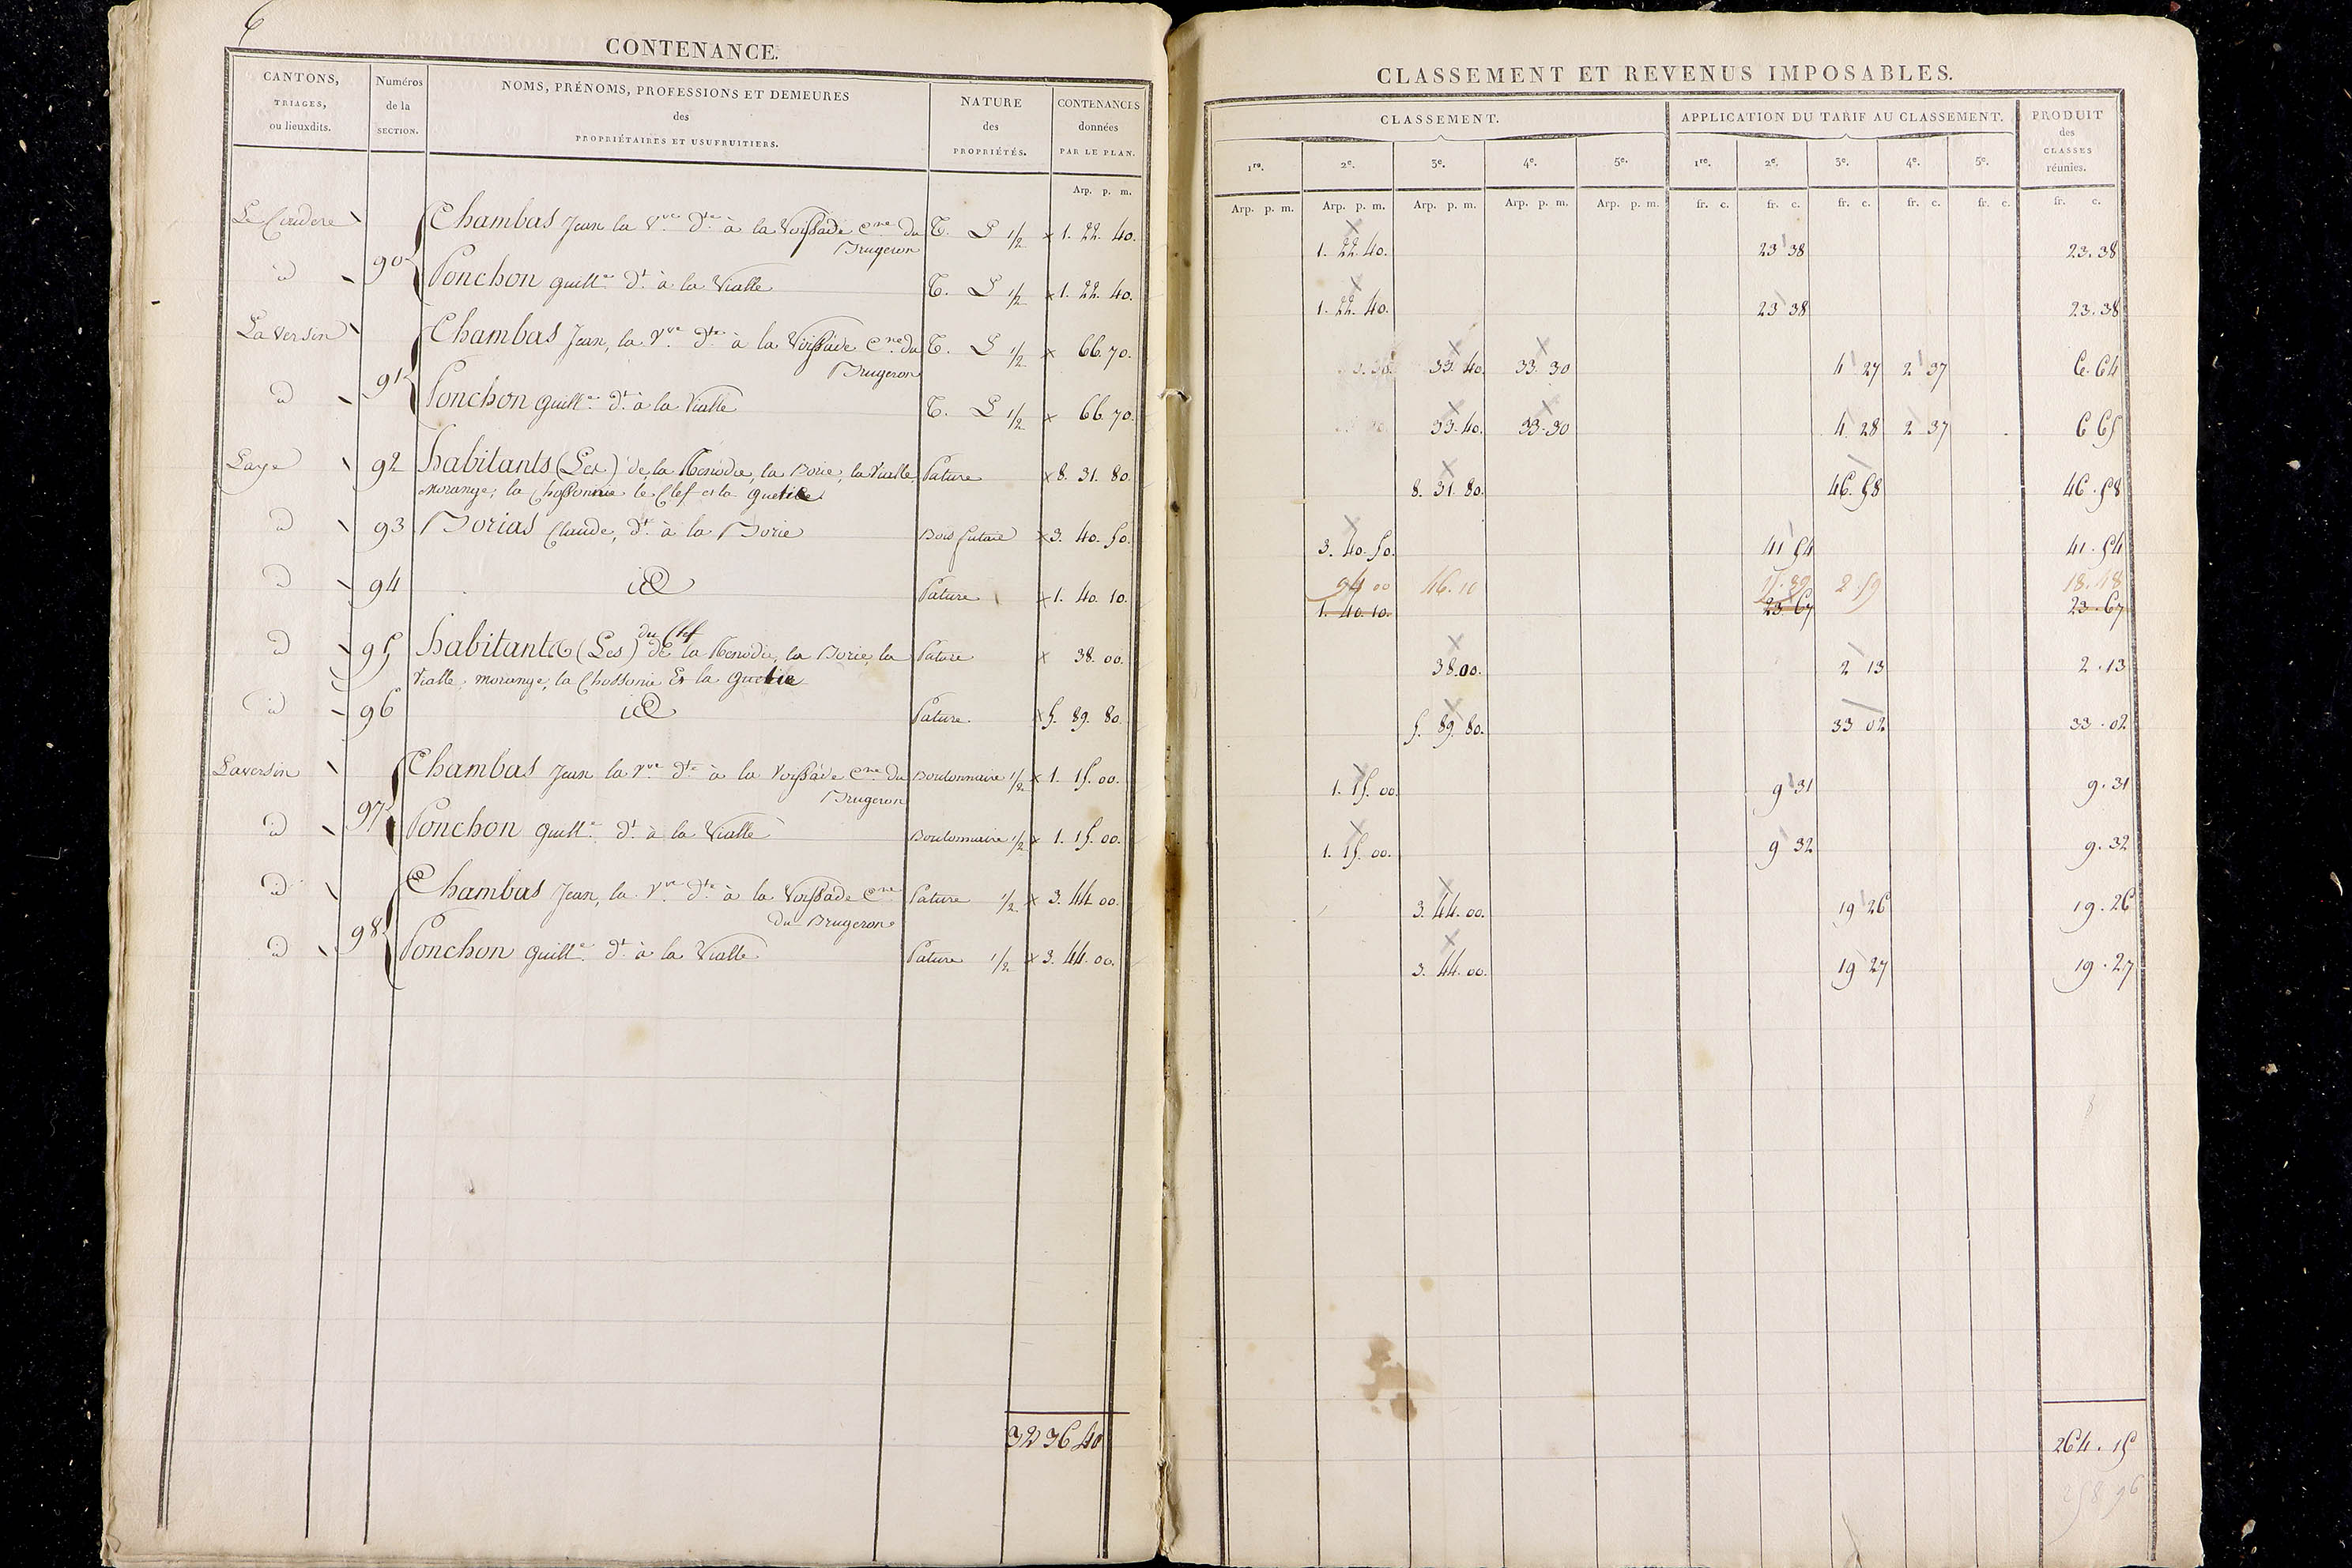 6
CONTENANCE.
CANTONS, TRIAGES, ou lieuxdits.
Numéros de la SECTION.
NOMS, PRÉNOMS, PROFESSIONS ET DEMEURES des PROPRIÉTAIRES ET USUFRUITIERS.
NATURE des PROPRIÉTÉS.
CONTENANCES données PAR LE PLAN.
Arp. p. m.
Chambas Jean la Vve dte à la Voissade Cne du T. L 1/2 1. 22. 40.
Brugeron
id 90 Ponchon Guille dt à la Vialle T. L 1/2 1. 22. 40.
Laversin Chambas Jean, la Vve dte à la Voissade Cne du T. L 1/2 66. 70.
Brugeron
id 91 Ponchon Guille dt à la Vialle T. L 1/2 66. 70.
Laye 92 habitants (Les) de la Renodie, la Borie, la Vialle Pature 8. 31. 80.
Morange, la Chossonnie le Clef et la
id 93 Borias Claude, dt à la Borie Bois futaie 3. 40. 50.
id 94 id Pature 1. 40. 10.
du Clef
id 95 habitants (Les) de la Renodie, la Borie, la Pature 38. 00.
Vialle, Morange, la Chossonie Et la
id 96 id Pature. 5. 89. 80.
Laversin Chambas Jean la Vve dte à la Voissade Cne du Boulonnaire 1/2 1. 15. 00.
Brugeron
id 97 Ponchon Guille dt à la Vialle Boulonnaire 1/2 1. 15. 00.
id Chambas Jean, la Vve dte à la Voissade Cne Pature 1/2 3. 44. 00.
du Brugeron
id 98 Ponchon Guille dt à la Vialle Pature 1/2 3. 44. 00.
32 36 40
CLASSEMENT ET REVENUS IMPOSABLES.
CLASSEMENT. APPLICATION DU TARIF AU CLASSEMENT. PRODUIT des CLASSES réunies.
1re. 2e. 3e. 4e. 5e. 1re. 2e. 3e. 4e. 5e.
Arp. p. m. Arp. p. m. Arp. p. m. Arp. p. m. Arp. p. m. fr. c. fr. c. fr. c. fr. c. fr. c. fr. c.
1. 22. 40. 23 38 23. 38
1. 22. 40. 23 38 23. 38
33. 40. 33. 30 4 27 2 37 6. 64
33. 40. 33. 30 4. 28 2 37 6 65
8. 31 80. 46. 58 46. 58
3. 40. 50. 41 54 41. 54
94 00 46. 10 2 59 18. 48
1. 40. 10. 23 67 23. 67
38.00. 2 13 2. 13
5. 89. 80. 33 02 33. 02
1. 15. 00. 9 31 9. 31
1. 15. 00. 9 32 9. 32
3. 44. 00. 19 26 19. 26
3. 44. 00. 19 27 19. 27
264. 15
258 96